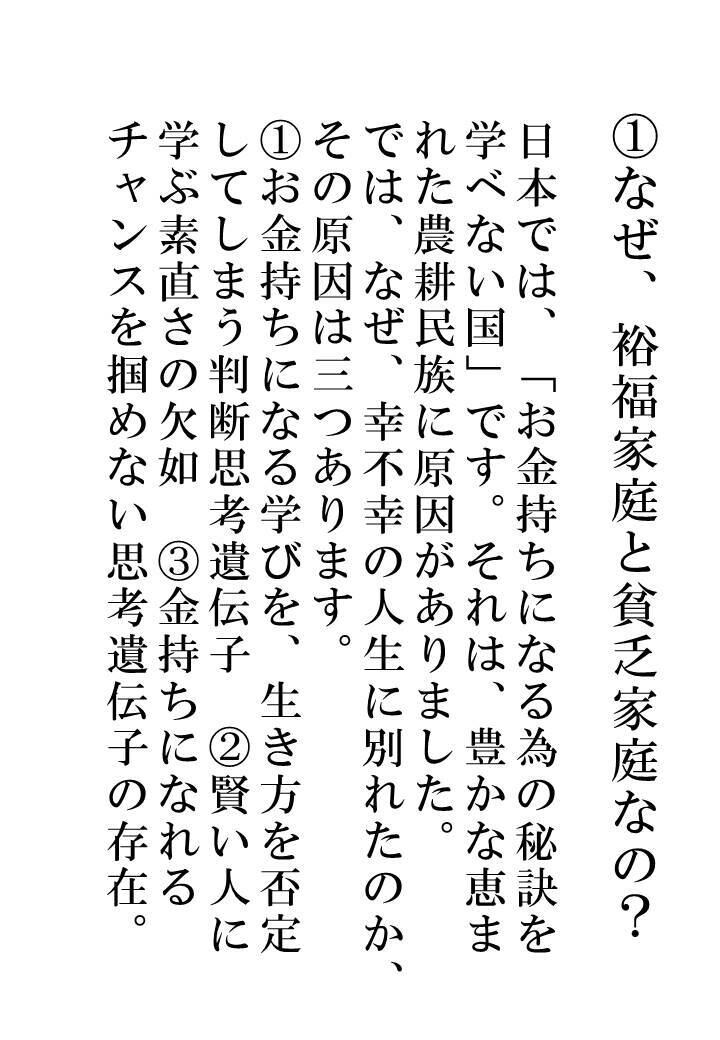 ①なぜ、裕福家庭と貧乏家庭なの？
日本では、「お金持ちになる為の秘訣を
学べない国」です。それは、豊かな恵ま
れた農耕民族に原因がありました。
では、なぜ、幸不幸の人生に別れたのか、
その原因は三つあります。
①お金持ちになる学びを、生き方を否定
してしまう判断思考遺伝子　②賢い人に
学ぶ素直さの欠如　③金持ちになれる
チャンスを掴めない思考遺伝子の存在。